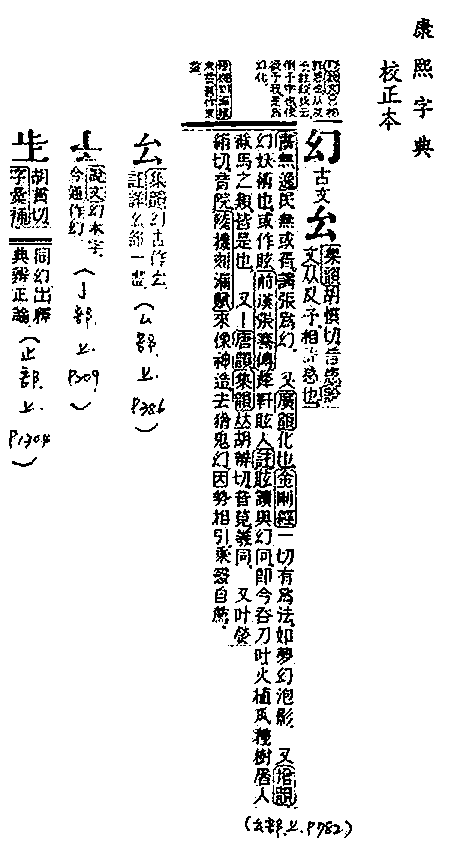 康熙字典
校正本
幻 古文
集韻胡慣切音患說
文从反予.相詐惑也
書無逸民無或胥譸張爲幻 又廣韻化也金剛經一切有爲法如夢幻泡影 又增韻
幻妖術也或作眩前漢張騫傳犛靬眩人註眩讀與幻同卽今吞刀吐火植瓜種樹屠人
截馬之類皆是也 又丨唐韻集韻𠀤胡辨切音莧義同 又叶熒
絹切音院陸機刻漏賦來像神造去猶鬼幻因勢相引乘靈自薦
(幺部.上.P782)
集韻幻古作
註詳幺部一畫
(厶部.上.P386)
說文幻本字
今通作幻
部.上.
胡貫切
字彙補
同幻出釋
典辨正論
(止部.上.P1304)